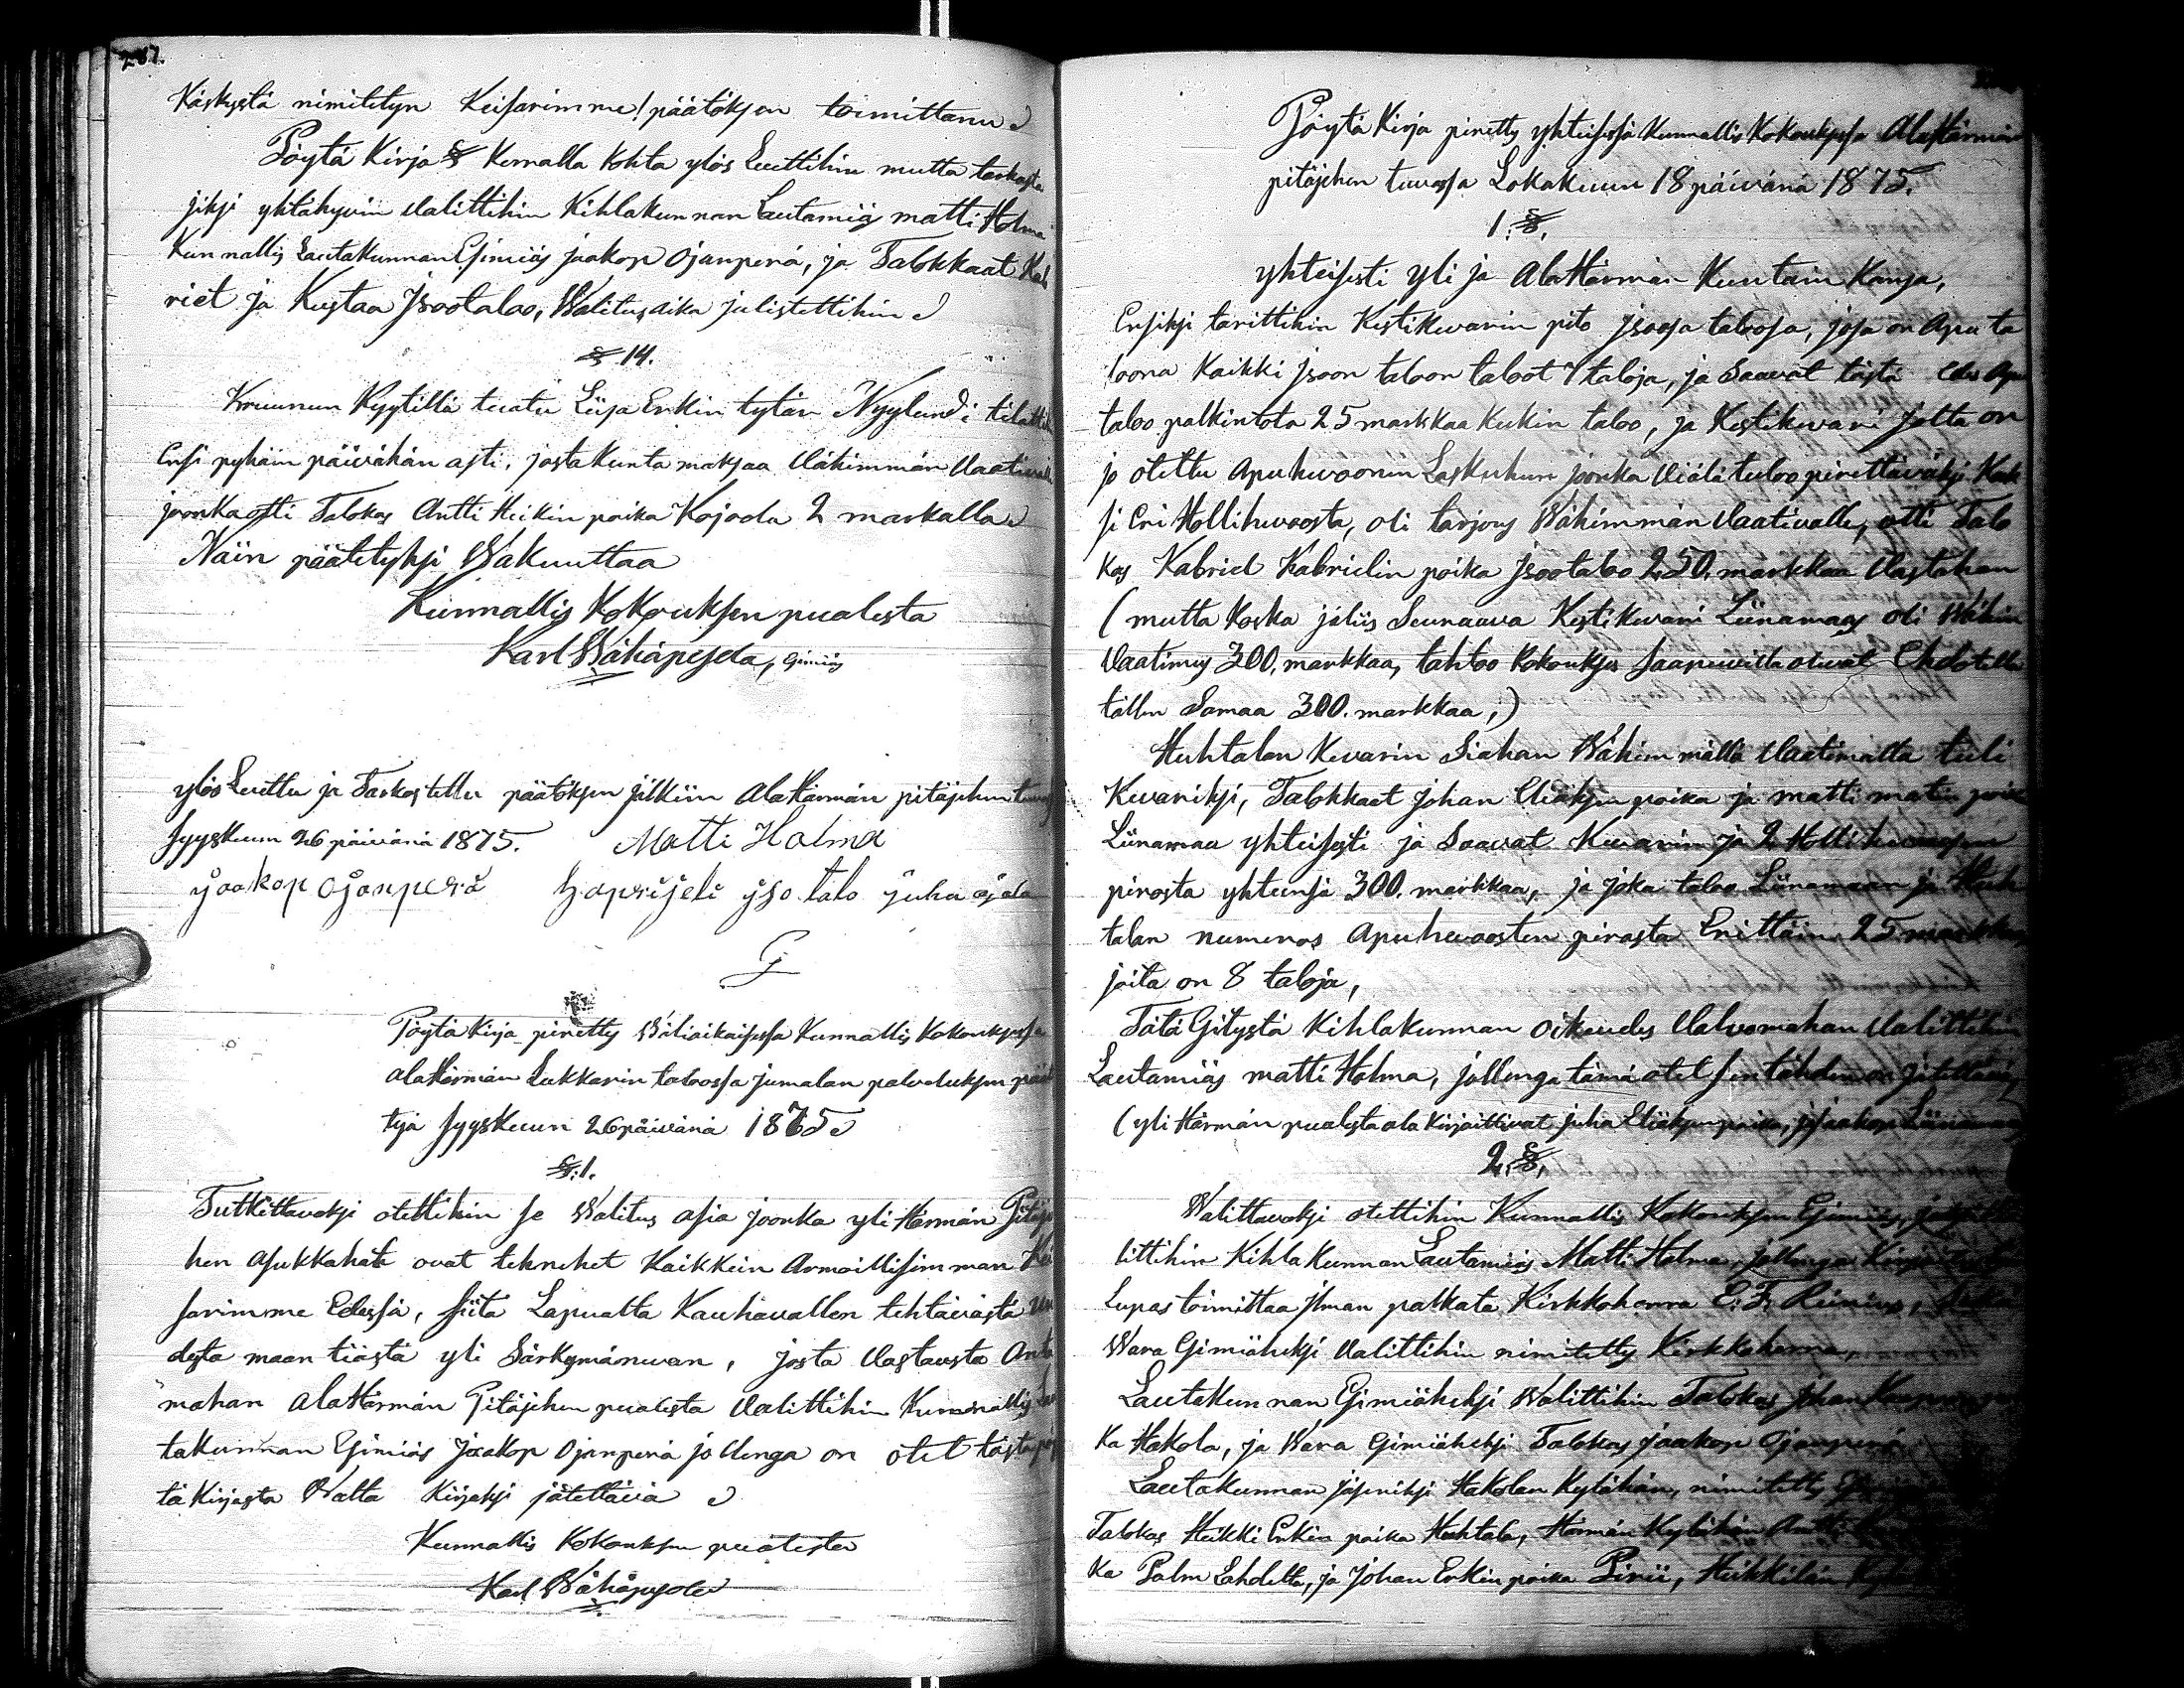 287.
Käskystä nimitetyn Keisarimme! päätöksen toimittanu
Pöytä Kirja § Kerralla Kohta ylös Luettihin mutta tarkasta
jiksi yhtähyvin valittihin Kihlakunnan Lautamiäs matti Holma
Kunnallis Lautakunnan Esimiäs jaakop Ojanperä, ja Talokkaat Kab
riet ja Kustaa Jsootaloo, Walitus aika julistettihin
§ 14.
Kruunun Kyytillä tuatu Liisa Erkin tytär Nyylundi
Ensi pyhäin päivähän asti, josta kunta maksaa Vähimmän Vaativalle
joonka otti Talokas Antti Heikin poika Kojoola 2 markalla
Näin päätetyksi Wakuuttaa
Kunnallis Kokouksen puolesta
Karl Wähäpesola, Esimiäs
ylös Luettu ja Tarkastettu päätöksen jälkiin AlaHärmän pitäjehen
Syyskuun 26 päivänä 1875. Matti Holma
jaakop ojanperä kaprijeli yso talo juha ojala
Pöytä Kirja piretty Wäliaikaisessa Kunnallis Kokouksessa
alaHärmän Lukkarin taloossa jumalan palveluksen päät
tyjä Syyskuun 26 päivänä 1875
§.1.
Tutkittavaksi otettihin se Walitus asia joonka yli Härmän Pitäje
hen asukkahat ovat tehnehet Kaikkein Armollisimman Kei
sarimme Edessä, siitä Lapualta Kauhavallen tehtävästä uu
desta maan tiästä yli Särkymänevan, josta Vastausta Anta
mahan alaHärmän Pitäjehen puolesta Valittihin Kunnallis Lau
takunnan Esimiäs Jaakop Ojanperä jollenga on otet tästä pöy
tä Kirjasta Walta Kirjaksi jätettävä
Kunnallis Kokouksen puolesta
Karl Wähäpesola
Pöytä Kirja piretty yhteisessä Kunnallis Kokouksessa AlaHärmän
pitäjehen tuvassa Lokakuun 18 päivänä 1875.
1.§.
yhteisesti yli ja AlaHärmän Kuntain Kansa,
Ensiksi tarittihin Kestikevarin pito Jsoosa taloosa, josa on Apu ta
loona Kaikki Jsoon taloon taloot 7 taloja, ja Saavat tästä Apu
taloo palkintota 25 markkaa Kukin taloo, ja Kestikevari jolta on
jo otettu Apuhevoonin Laskuhun joonka Viälä tuloo pirettäväksi Kak
si Eri Hollihevoosta, oli tarjous Wähimmän Vaativalle, otti Talo
kas Kabriel Kabrielin poika Jsootaloo 250. markkaa Vastahan
(mutta Koska jäliis Seuraava Kestikevari Liinamaas oli Wähin
Vaatimus 300. markkaa, tahtoo Kokoukses saapuvilla olevat Ehdotella
tällen Samaa 300. markkaa,)
Huhtalan Kevarin Siahan Wähimmällä Vaatimalla tuli
Kevariksi, Talokkaat Johan Eliäksen poika ja matti matin poika
Liinamaa yhteisesti ja Saavat Kevarin ja 2 Hollihevoosen
pirosta yhteensä 300. markkaa, ja joka taloo Liinamaan ja Huh
talan numeros Apuhevoosten pirosta Erittäin 25 markkaa
joita on 8 taloja,
Tätä Esitystä Kihlakunnan oikeudes Valvomahan Valittihin
Lautamiäs matti Holma, jollenga tämä otet sentähden on jätettävä
(yli Härmän puolesta ala kirjoittivat juha Eliäksen poika, ja jaakop Liinamaa
2.§.
Walittavaksi otettihin Kunnallis Kokouksen Esimiäs,
littihin Kihlakunnan Lautamiäs Matti Holma, jollenga
Lupas toimittaa ilman palkata Kirkkoherra E. F. Rinius,
Wara Esimiäheksi Valittihin nimitetty Kirkkoherra,
Lautakunnan Esimiäheksi Walittihin Talokas Johan
ka Hakola, ja Wara Esimiäheksi Talokas jaakop Ojanperä
Lautakunnan jäseniksi Hakolan Kylähän, nimitetty
Talokas Heikki Erkin poika Huhtala, Härmän Kylähän Antti
ka Palm Lahdelta, ja Johan Erkin poika Pirii, Heikkilän